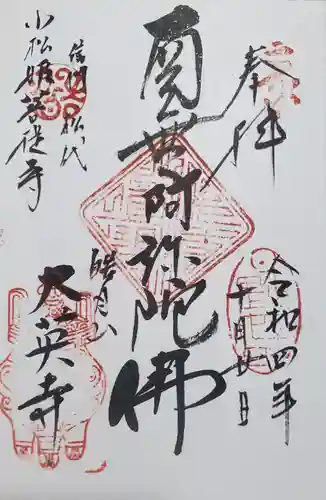 奉拝
令和四年
十月廿日
南無阿弥陀佛
皓月山
大英寺
信州松代
小松姫菩提寺